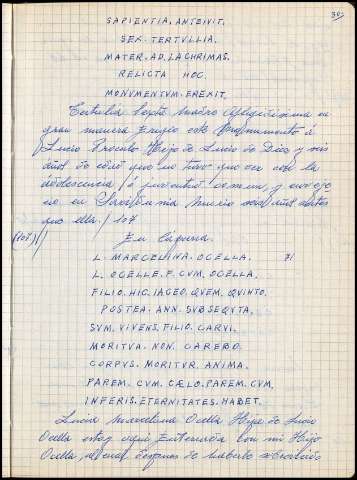 307
SAPIENTIA. ANTEIVIT.
SEX. TERTVLLIA.
MATER. AD. LACHRIMAS.
RELICTA HOC.
MONVMENTVM. EREXIT.
Tertulia Septa Madre Afligidisima en
gran manera Erigio este Monumento á
Lucio Proculo Hijo de Lucio de Diez y seis
años de edad que en
adolescencia / ó juventud comun, y
en murio seis años antes
que ella. / 107
(107) En Cápena.
L. MARCELINA. OCELLA. 71
L. OCELLE. F. CVM. OCELLA.
FILIO. HIC. IACEO. QVEM. QVINTO.
POSTEA. ANN. SVBSEQVTA.
SVM. VIVENS. FILIO. CARVI.
MORITVA. NON. CAREBO.
CORPVS. MORITVR. ANIMA.
PAREM. CVM. CÆLO. PAREM. CVM.
INFERIS. ETERNITATES. HABET.
Lucia Marcelina Ocella Hija de Lucio
Ocella estoy aqui Enterrada con mi Hijo
Ocella, despues de haberlo